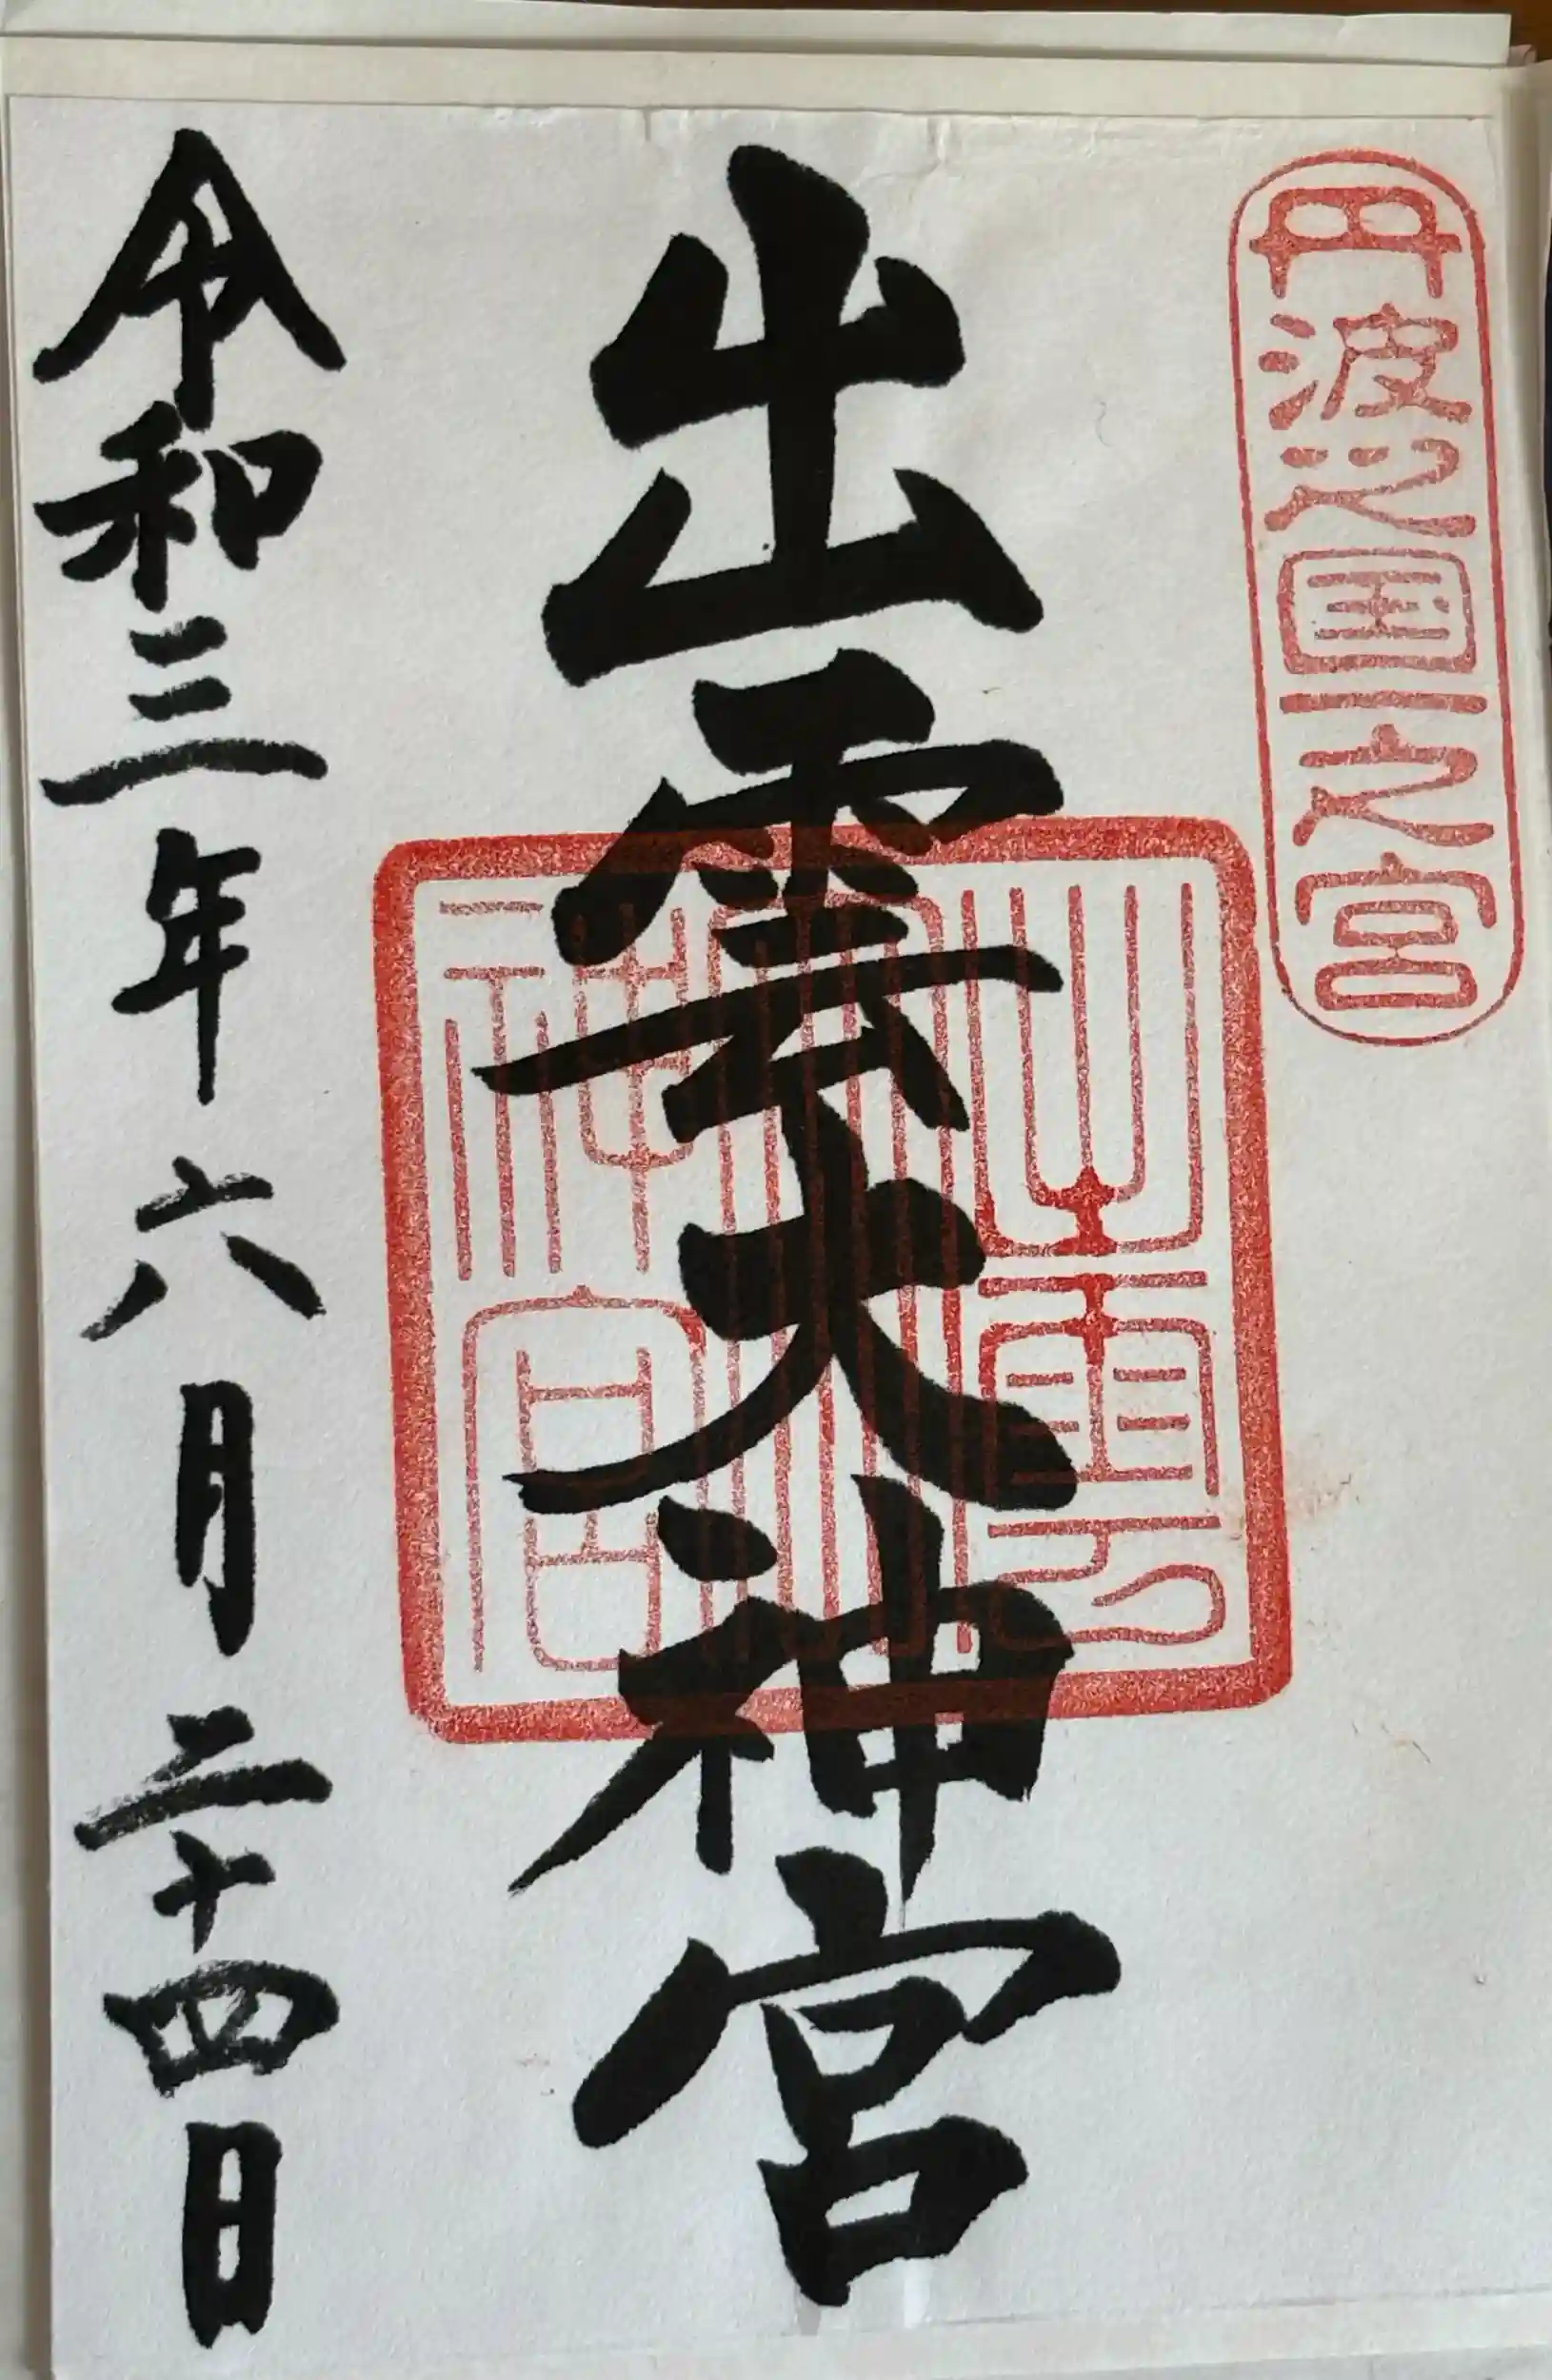 丹波之國一之宮
出雲大神宮
出雲大神宮
令和三年六月二十四日